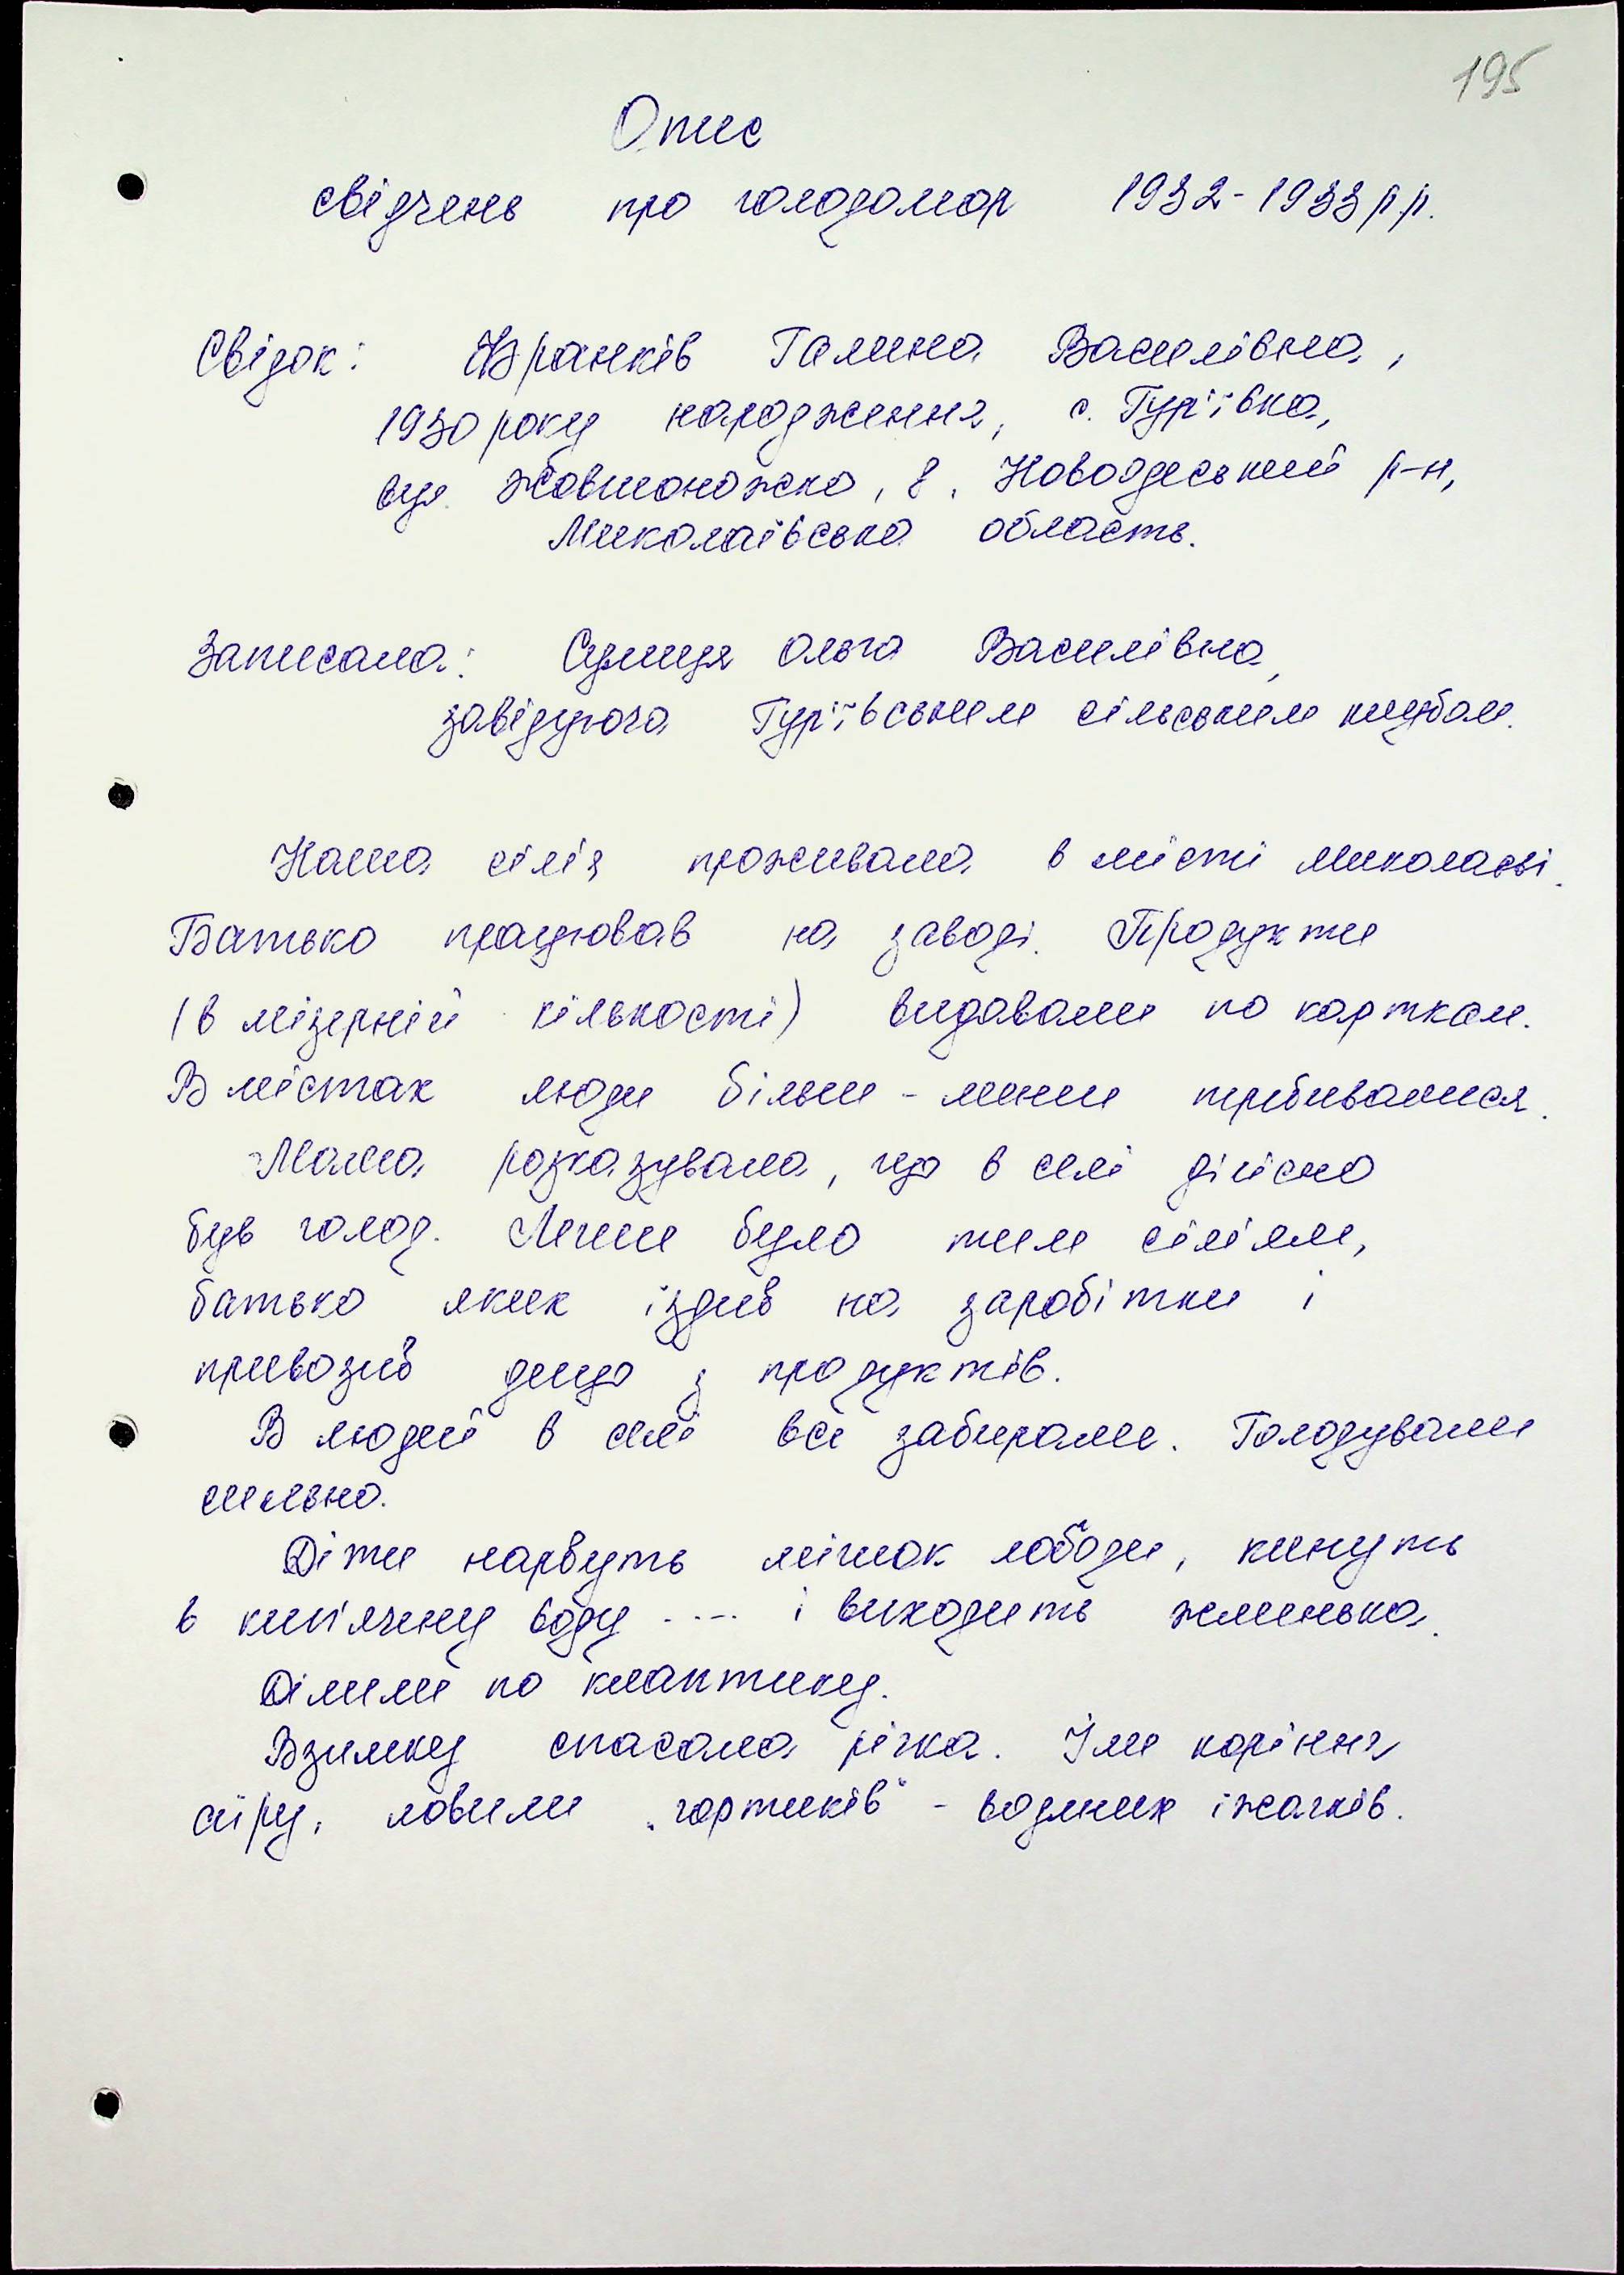 195
Опис
свідчень про голодомор 1932-1933 рр.
Свідок: Франків Галина Василівна,
1930 року народження, с. Гур'ївка,
вул. Жовтоножка, 8, Новоодеський р-н,
Миколаївська область.
Записала: Сулиця Ольга Василівна,
завідуюча Гур'ївським сільським клубом.
Наша сім'я проживала в місті Миколаєві.
Батько працював на заводі. Продукти
(в мізерній кількості) видавали по карткам.
В містах люди більш-менш перебивалися.
Мама розказувала, що в селі дійсно
був голод. Легше було тим сім'ям,
батько яких їздив на заробітки і
привозив дещо з продуктів.
В людей в селі все забирали. Голодували
сильно.
Діти нарвуть мішок лободи, кинуть
в кип'ячену воду .... і виходить жменька.
Ділили по клаптику.
Взимку спасала річка. Їли коріння
аїру, ловили „чортиків" - водяних їжачків.